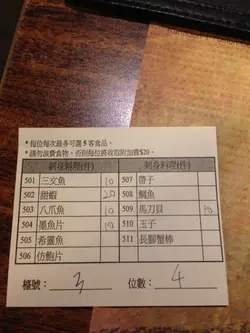 *每位每次最多可選 5 客食品。
*請勿浪費食物，否則每位將收取附加費$20。
刺身料理(件) 刺身料理(件)
501 三文魚 10 507 帶子
502 甜蝦 20 508 鯛魚
503 八爪魚 10 509 馬刀貝 10
504 墨魚片 10 510 玉子
505 希靈魚 511 長腳蟹棒
506 仿鮑片
檯號： 3 位數： 4